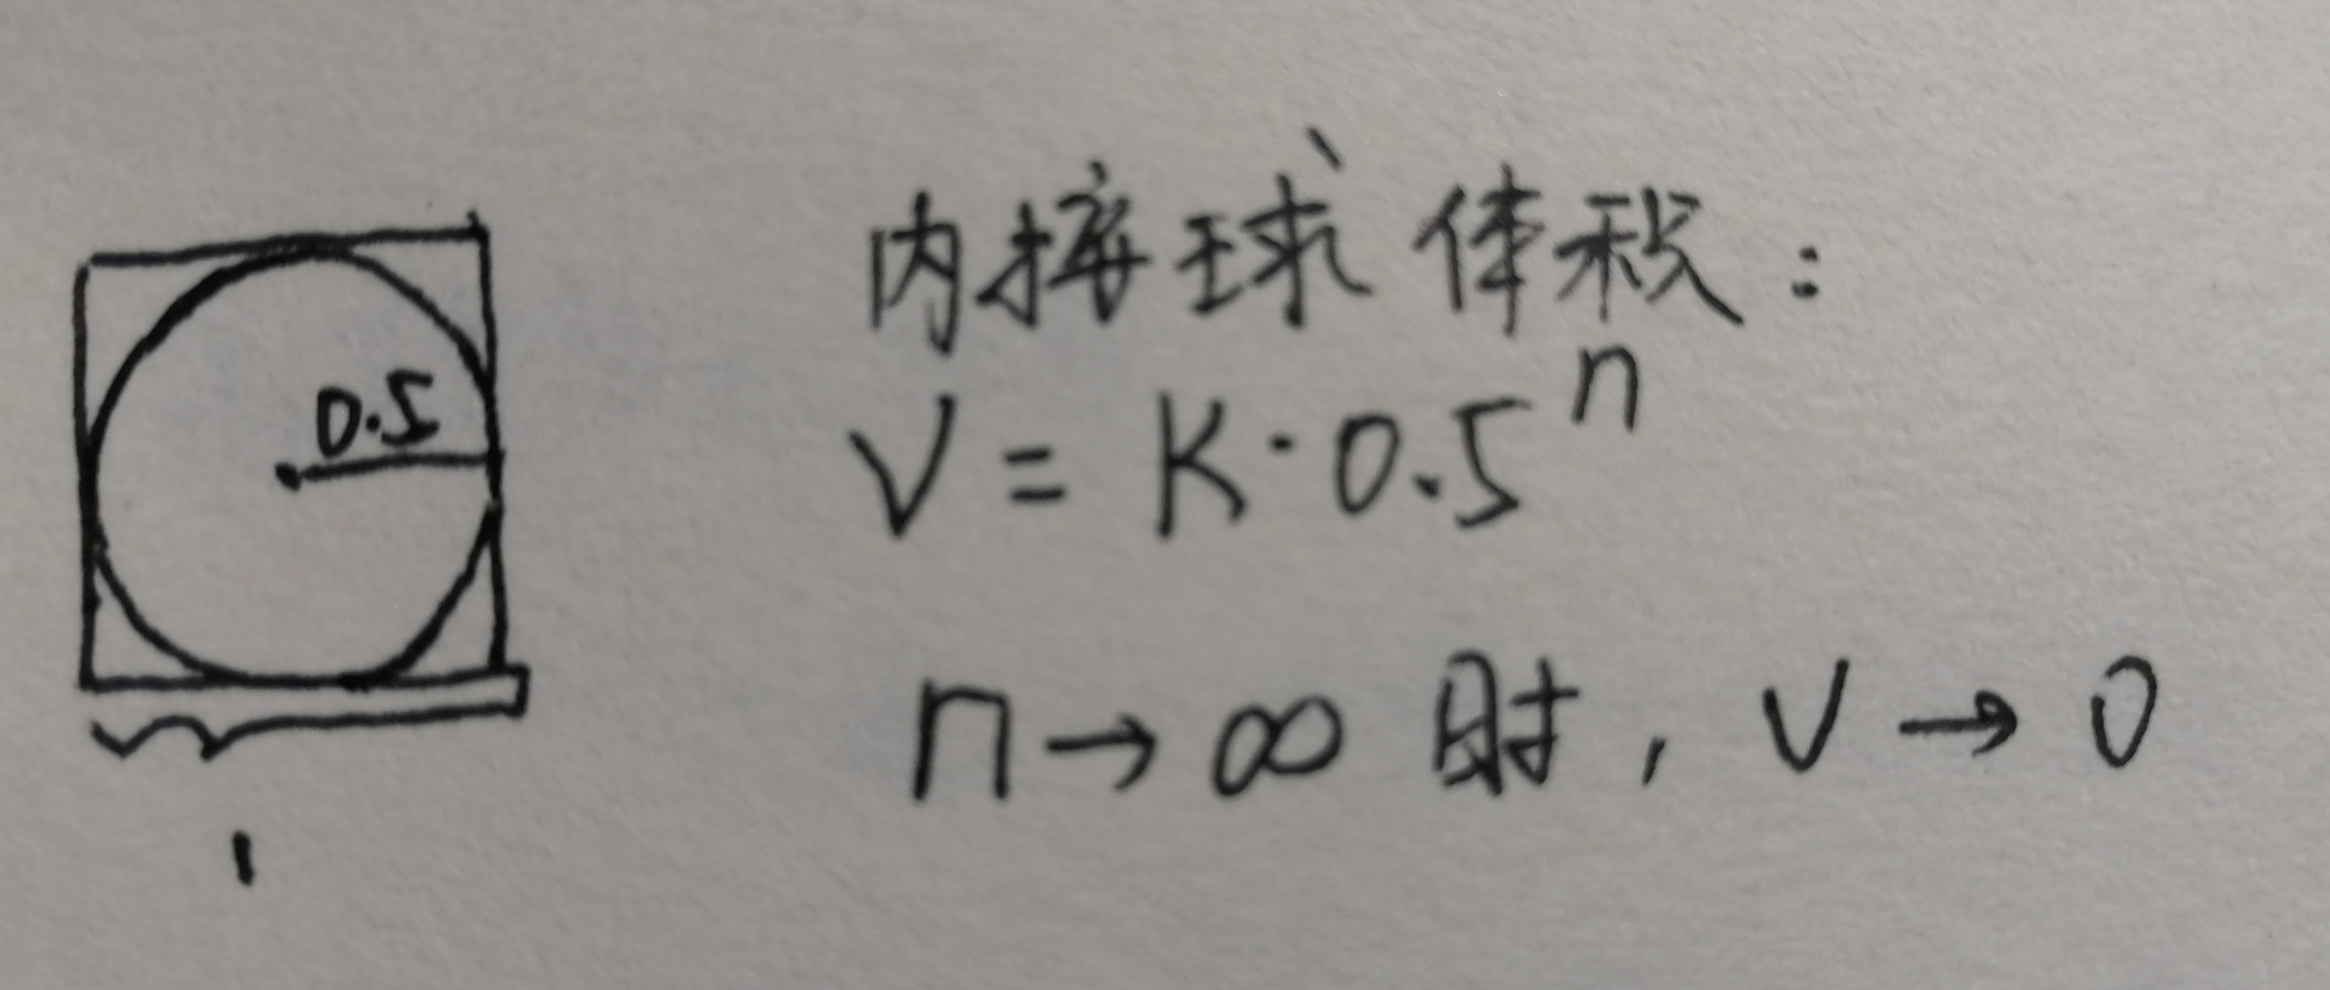 0.5
1
内接球体积：
V = K·0.5^n
n→∞ 时，V→0